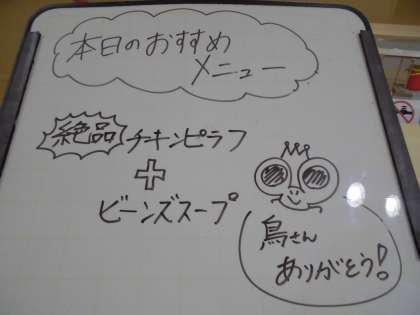 本日のおすすめ
メニュー
絶品 チキンピラフ
+
ビーンズスープ
鳥さん
ありがとう!